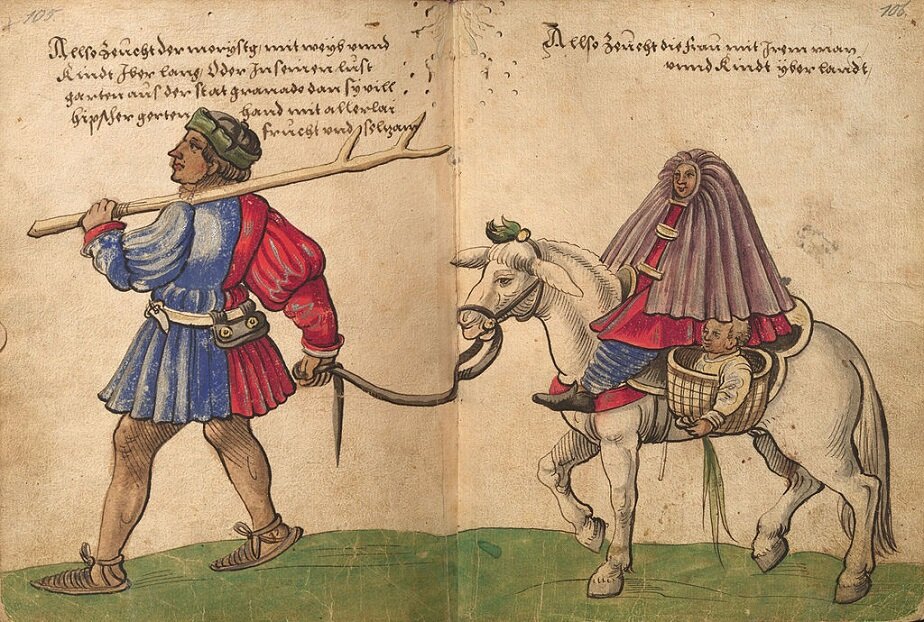 105.
Allso Zeucht der morystg mit weyb unnd
Kindt Iber lang, Oder In seinen lust
garten aus der stat granado dan sy vill
hipscher gerten hand mit allerlai
frucht und selzam
106.
Allso Zeucht die frau mit Irem man
unnd Kindt yber landt,